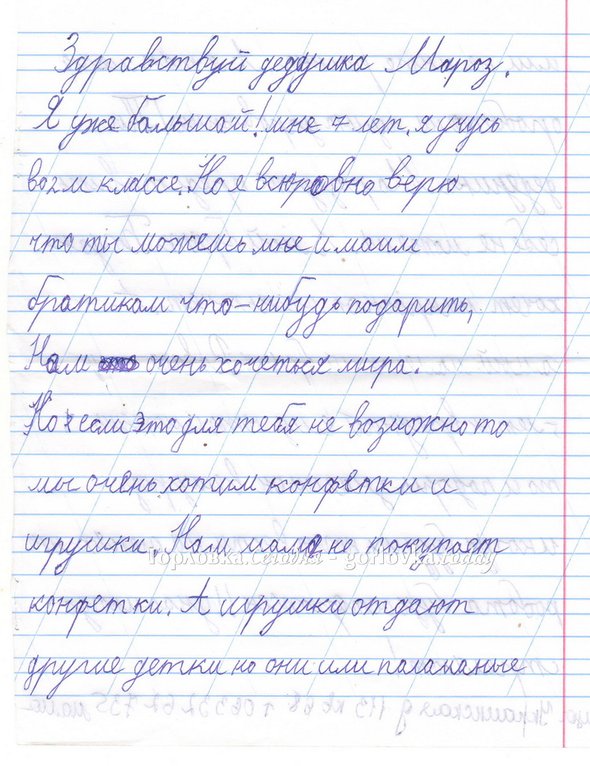 Здравствуй дедушка Мароз.
Я уже балышой! мне 7 лет, я учусь
во 2м классе. Но я всюровно верю
что ты можешь мне и маим
братикам что-нибудь подарить,
Нам очень хочеться мира.
Но если это для тебя не возможно то
мы очень хотим конфетки и
игрушки. Нам мама не покупает
Горловка сегодня - gorlovka.today
конфетки. А игрушки отдают
другие детки но они или паламаные